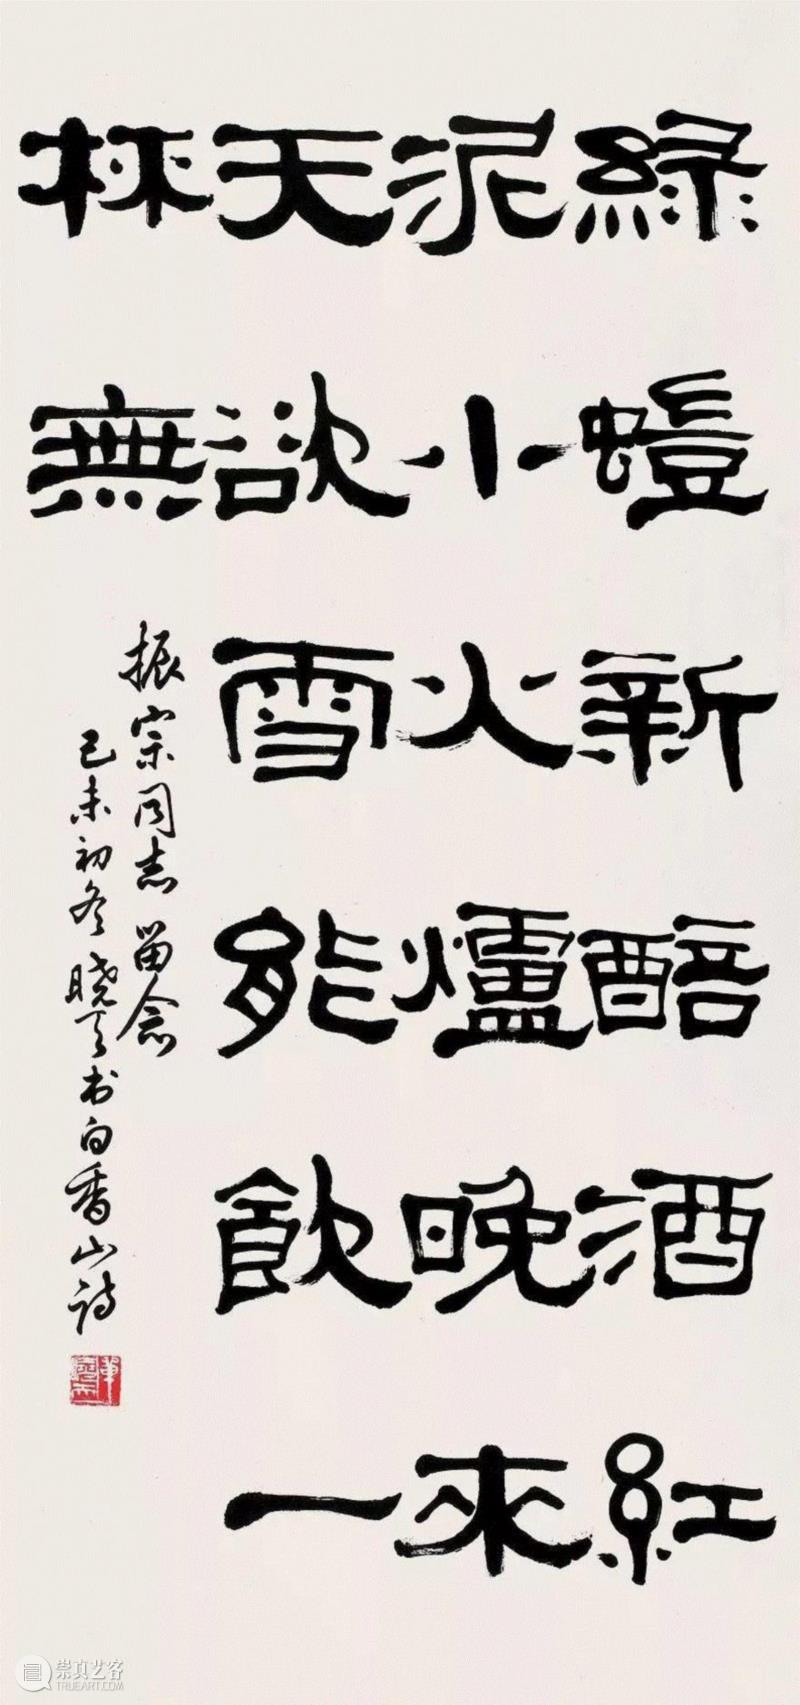 綠螘新醅酒紅
泥小火爐晚來
天欲雪能飲一
杯無
振宗同志留念
己未初冬晓天书白香山诗
崇真艺客
WWW.TRUEART.COM